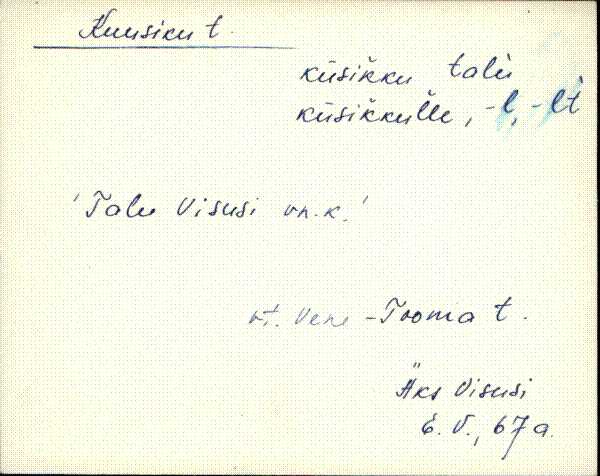 Kuusiku t.
kūsikku talù
kūsikkulle, -l, -lt
'Talu Visusi vn. k.'
vt. Vene-Tooma t.
Äks Visusi
E. V., 67 a.